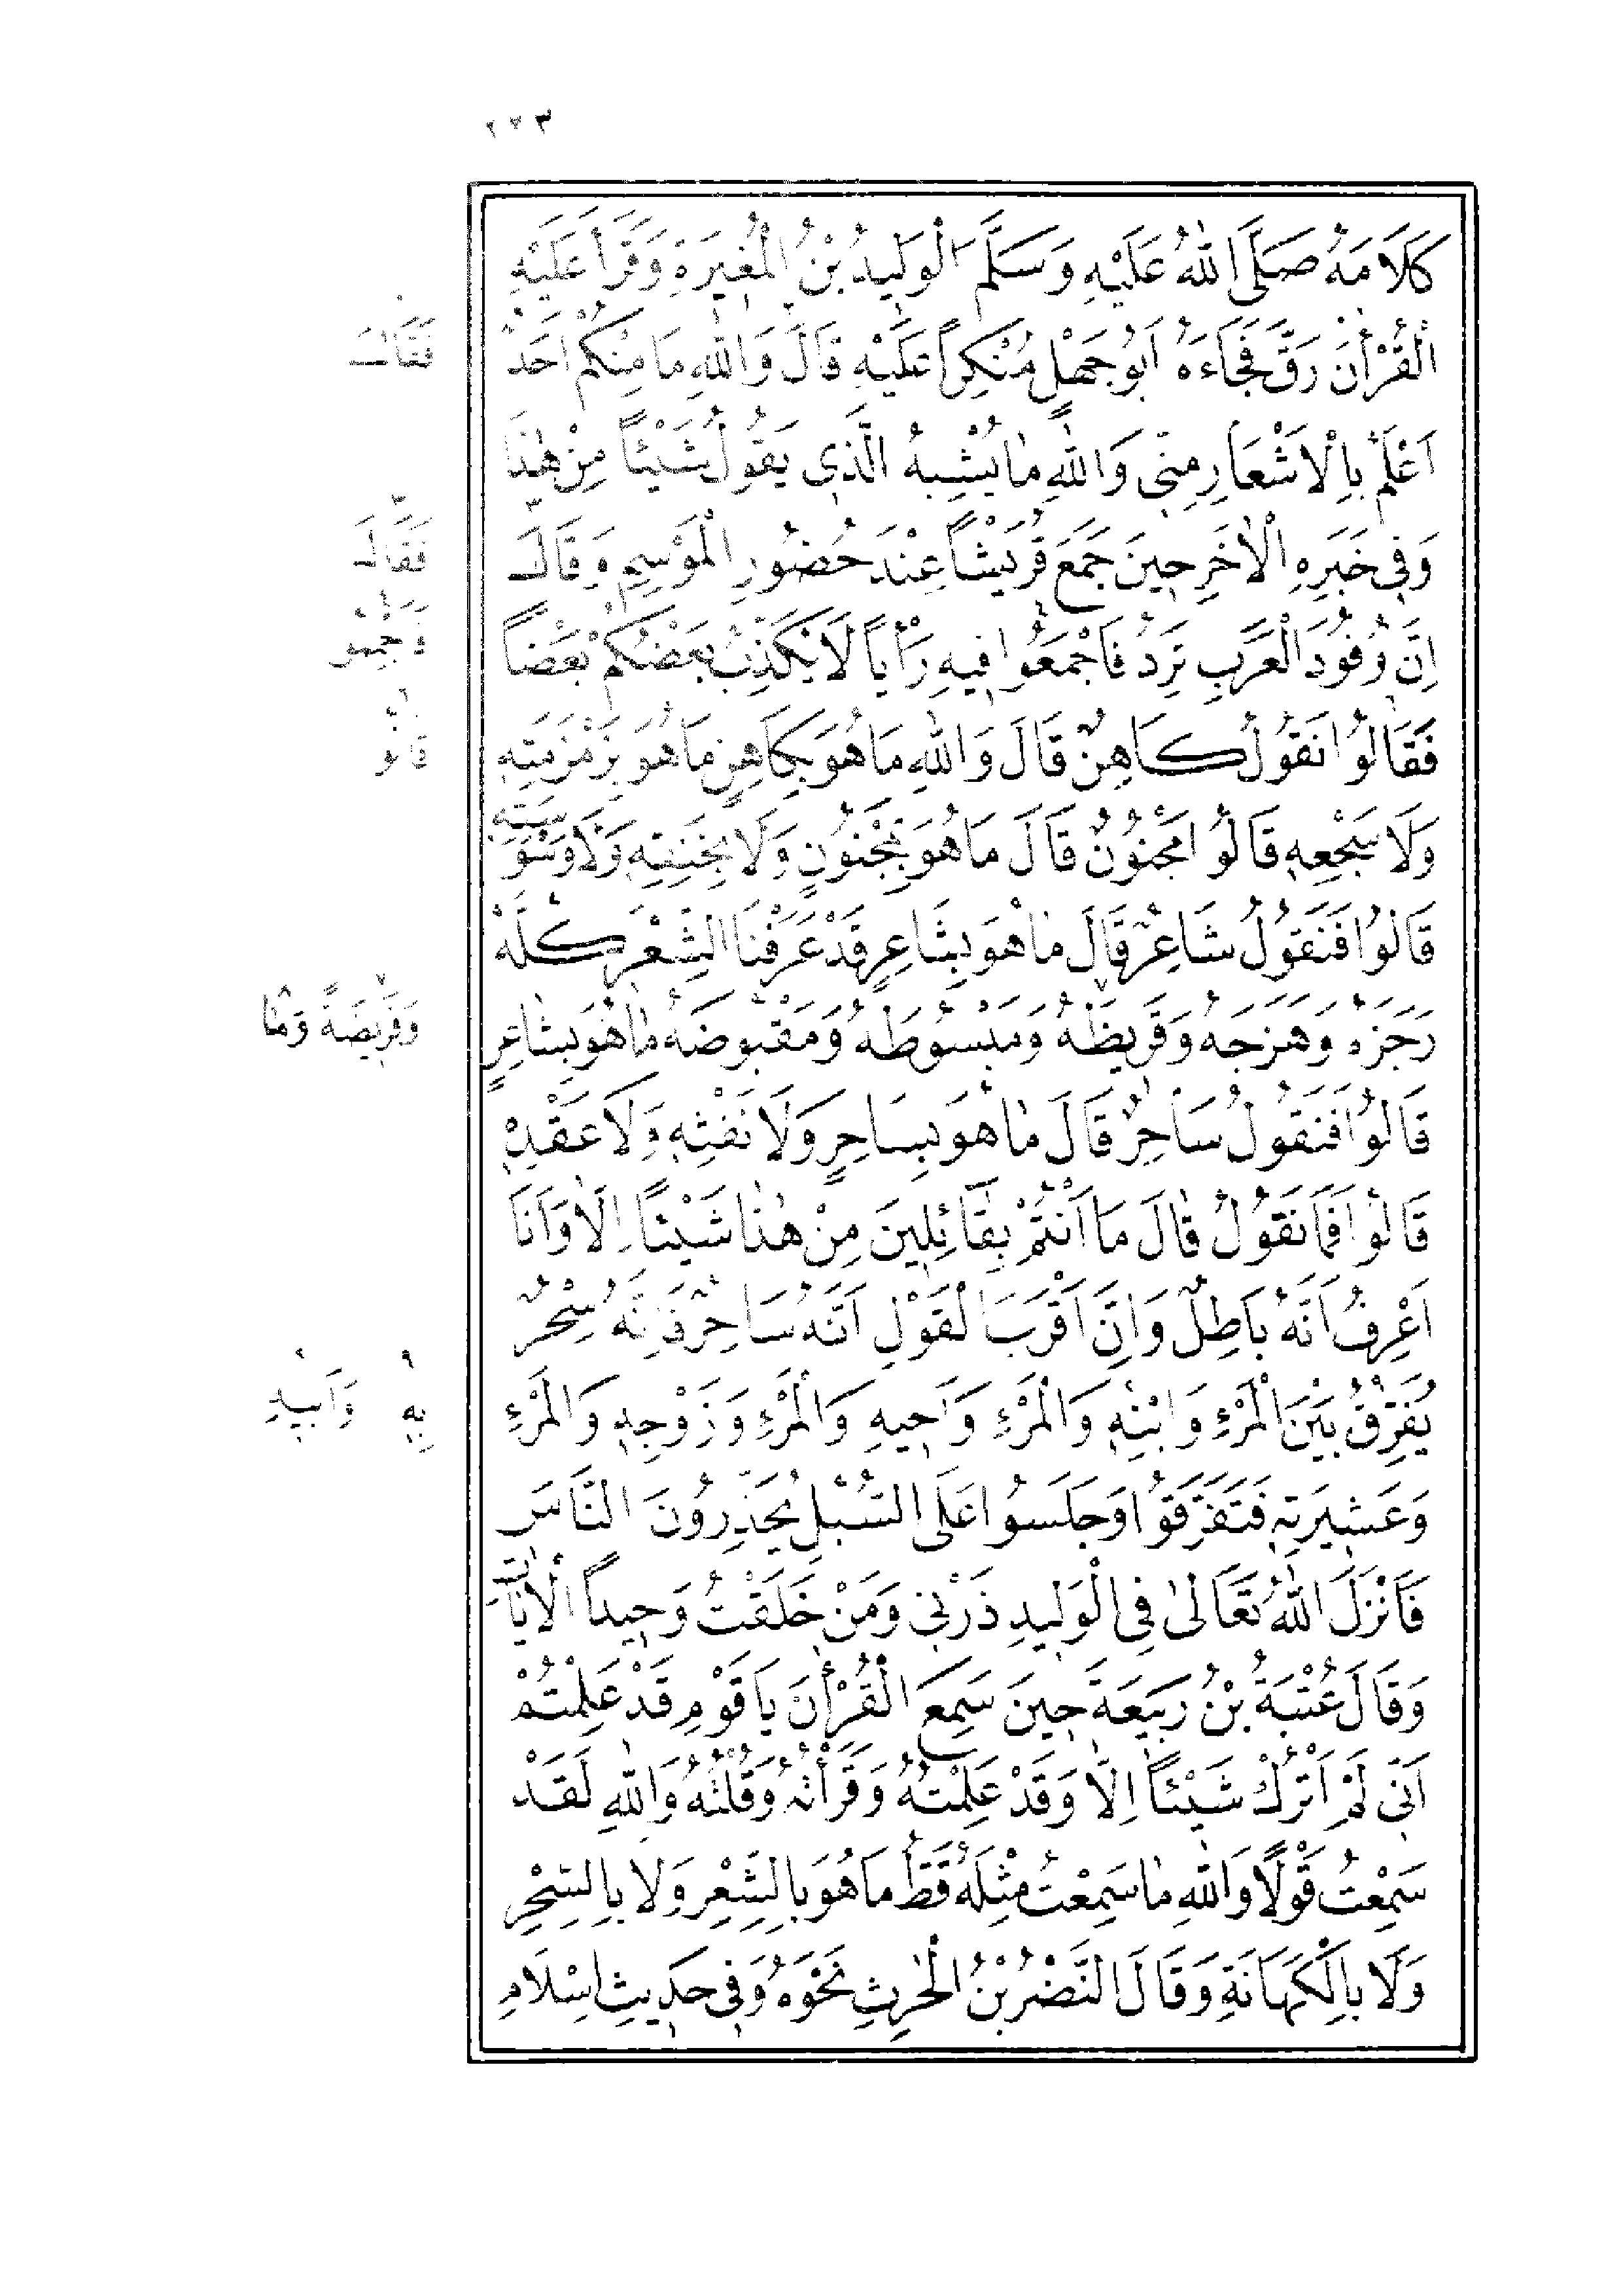 كَلَامَهُ صَلَّى اللهُ عَلَيْهِ وَسَلَّمَ الْوَلِيدُ بْنُ الْمُغِيَرةِ وَقَرَأَ عَلَيْهِ
الْقُرْأٰنَ رَقَّ فَجَاءَهُ اَبُو جَهْلٍ مُنْكِراً عَلَيْهِ قَالَ وَاللهِ مَا مِنْكُمْ اَحَدٌ
فَقَالَ
اَعْلَمُ بِالْاَشْعَارِ مِنِّى وَاللهِ مٰا يُشْبِهُ الَّذِى يَقُولُ شَيْئاً مِنْ هٰذَا
وَفِى خَبَرِهِ الْاٰخَرِ حِينَ جَمَعَ قُرَيْشاً عِنْدَ حُضُورِ الْمَوْسِمِ وَقَالَ
فَقَالَ
اِنَّ وُفُودَ الْعَرَبِ تَرِدُ فَاَجْمِعُوا فِيهِ رَأْياً لَا يُكَذِّبُ بَعْضُكُمْ بَعْضاً
فَقَالُوا نَقُولُ كَاهِنٌ قَالَ وَاللهِ مَا هُوَ بِكَاهِنٍ مَا هُوَ بِزَمْزَمَتِهِ
قَالُوا
وَلَا سَجْعِهِ قَالُوا مَجْنُونٌ قَالَ مَا هُوَ بِمَجْنُونٍ وَلَا بِخَنِقِهِ وَلَا وَسْوَسَتِهِ
قَالُوا فَنَقُولُ شَاعِرٌ قَالَ مٰا هُوَ بِشَاعِرٍ قَدْ عَرَفْنَا الشِّعْرَ كُلَّهُ
رَجَزَهُ وَهَزَجَهُ وَقَرِيظَهُ وَمَبْسُوطَهُ وَمَقْبُوضَهُ مٰا هُوَ بِشٰاعِرٍ
وَقَرِيضَهُ وَمٰا
قَالُوا فَنَقُولُ سَاحِرٌ قَالَ مٰا هُوَ بِسَاحِرٍ وَلَا نَفْثِهِ وَلَا عَقْدِهِ
قَالُوا فَمَا نَقُولُ قٰالَ مَا اَنْتُمْ بِقَٓائِلِينَ مِنْ هٰذٰا شَيْئاً اِلَّا وَاَنَا
اَعْرِفُ اَنَّهُ بَاطِلٌ وَاِنَّ اَقْرَبَ الْقَوْلِ اَنَّهُ سَاحِرٌ فَاِنَّهُ سِحْرٌ
يُفَرِّقُ بَيْنَ الْمَرْءِ وَابْنِهِ وَالْمَرْءِ وَاَخِيهِ وَالْمَرْءِ وَزَوْجِهِ وَالْمَرْءِ
بِهِ وَاَبِيهِ
وَعَشِيرَتِهِ فَتَفَرَّقُوا وَجَلَسُوا عَلَى السُّبُلِ يُحَذِّرُونَ النَّاسَ
فَاَنْزَلَ اللهُ تَعَالىٰ فِى الْوَلِيدِ ذَرْنِى وَمَنْ خَلَقْتُ وَحِيداً الْاٰيَاتِ
وَقَالَ عُتْبَةُ بْنُ رَبِيعَةَ حِينَ سَمِعَ الْقُرْأٰنَ يَا قَوْمِ قَدْ عَلِمْتُمْ
اَنِّى لَمْ اَتْرُكْ شَيْئاً اِلَّا وَقَدْ عَلِمْتُهُ وَقَرَأْتُهُ وَقُلْتُهُ وَاللهِ لَقَدْ
سَمِعْتُ قَوْلًا وَاللهِ مٰا سَمِعْتُ مِثْلَهُ قَطُّ مَا هُوَ بِالشِّعْرِ وَلا بِالسِّحْرِ
وَلَا بِالْكَهَانَةِ وَقَالَ النَّضْرُ بْنُ الْحٰرِثِ نَحْوَهُ وَفِى حَدِيثِ اِسْلَامِ